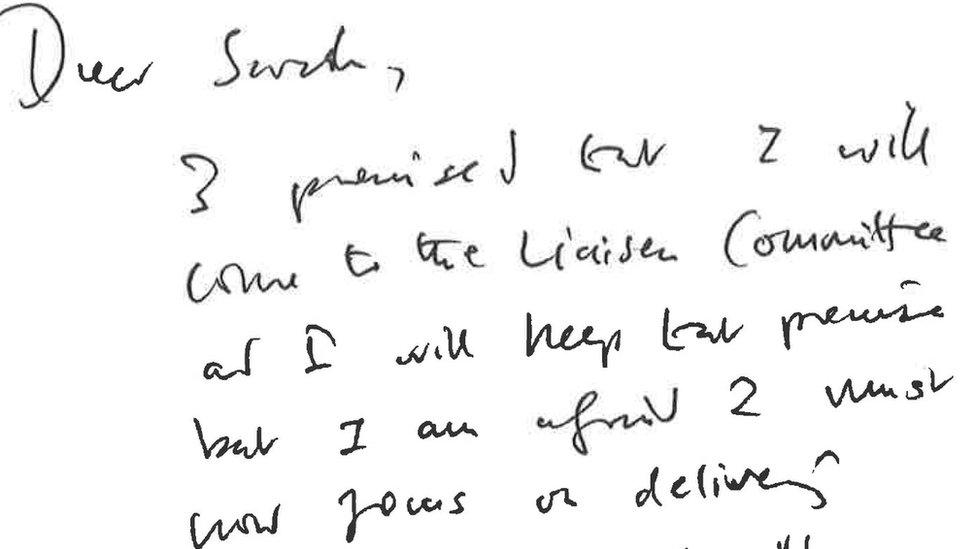 Dear Sarah,
I promised that I will
come to the Liaison Committee
and I will keep that promise
but I am afraid I must
now focus on delivering